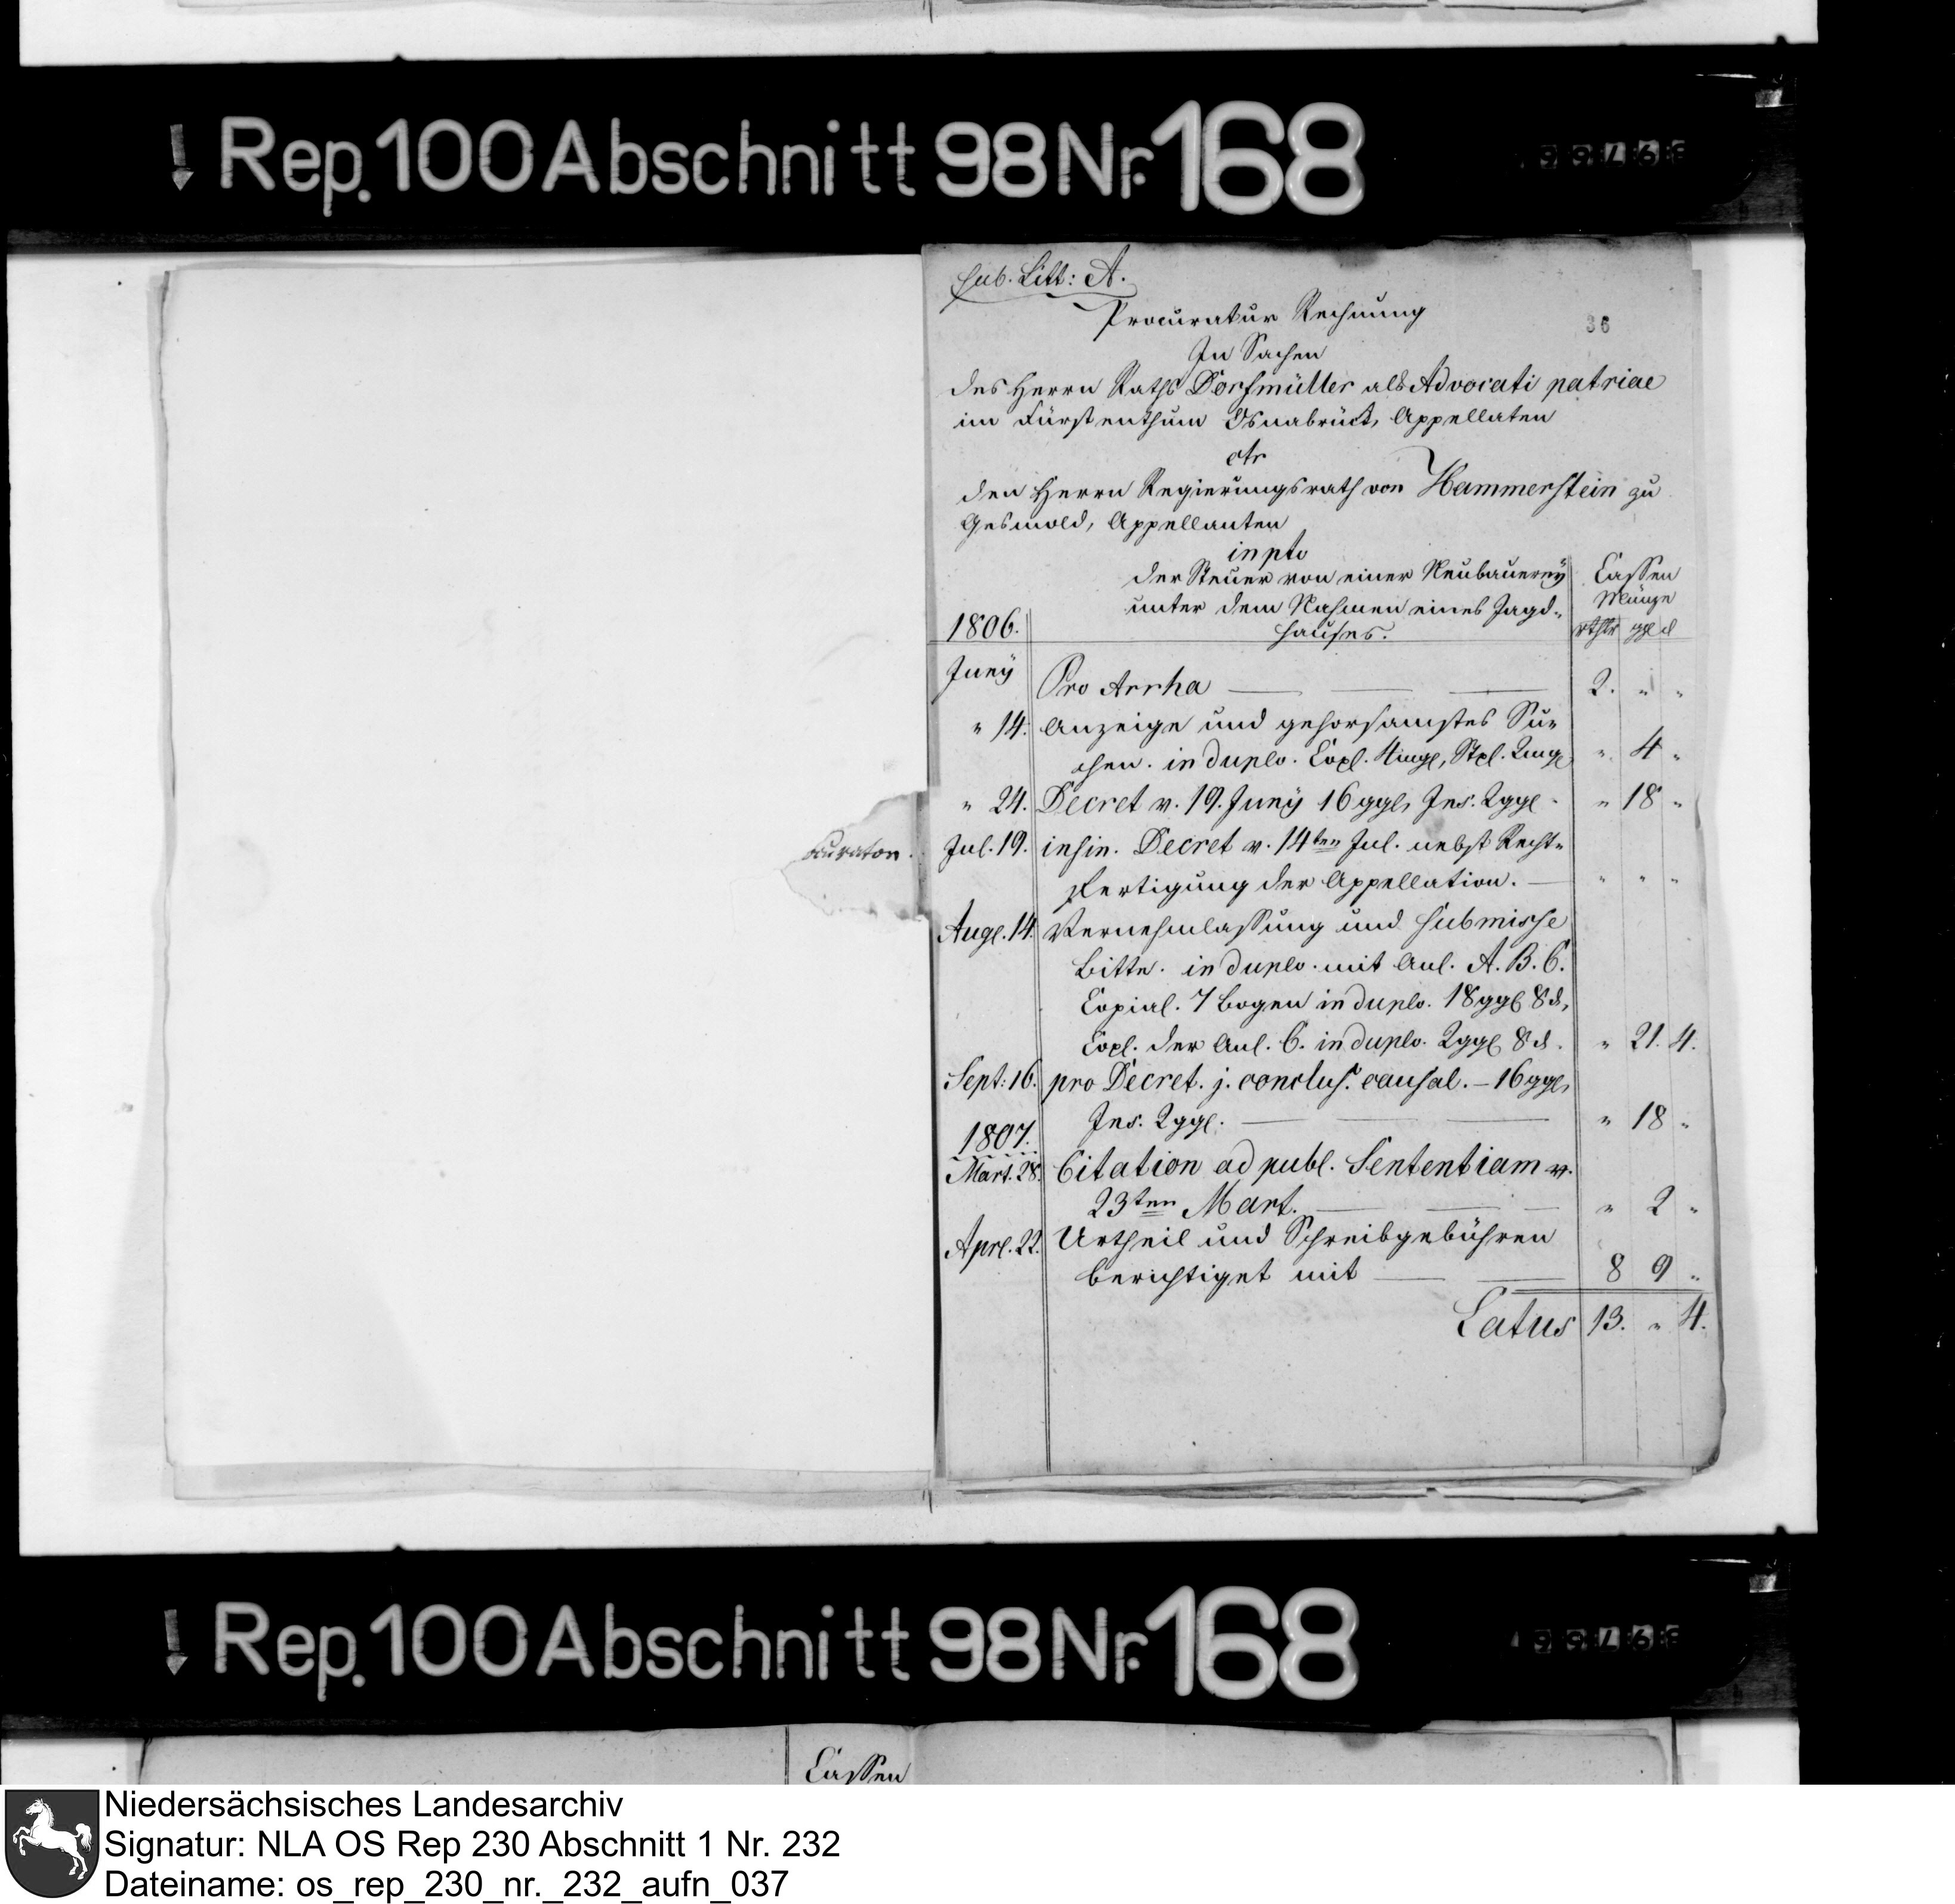 Rep. 100 Abschnitt 98 Nr. 168
Sub. Litt: A.
Procuratur Rechnung
36
In Sachen
des Herrn Raths Dorfmüller als Advocati patriae
im Fürstenthum Osnabrück, Appellaten
ctr
den Herrn Regierungsrath von Hammerstein zu
Gesmold, Appellanten
in pto
der Steuer von einer Neubauerey
unter dem Nahmen eines Jagd-
hauses.
Cassen
Münze
1806.
rthlr ggl d
Juny Pro Arrha 2. " "
" 14. Anzeige und gehorsamstes Su-
chen. in duplo. Copl. 4mgl, Stpl. 2mgl " 4 "
" 24. Decret v. 19. Juny 16 ggl, Ins. 2 ggl. " 18 "
Jul. 19. insin. Decret v. 14ten Jul. nebst Recht-
fertigung der Appellation. " " "
curaton.
Augl. 14. Vernehmlassung und submisse
Bitte. in duplo. mit Anl. A. B. C.
Copial. 7 Bogen in duplo. 18 ggl 8 d,
Copl. der Anl. C. in duplo. 2 ggl 8 d. " 21. 4.
Sept: 16. pro Decret. j. conclus. causal. – 16 ggl,
Ins. 2 ggl. " 18 "
1807.
Mart. 28. Citation ad publ. Sententiam v.
23ten Mart. " 2 "
Aprl. 22. Urtheil und Schreibgebühren
berichtiget mit 8 9 "
Latus 13. " 4.
Rep. 100 Abschnitt 98 Nr. 168
Cassen
Niedersächsisches Landesarchiv
Signatur: NLA OS Rep 230 Abschnitt 1 Nr. 232
Dateiname: os_rep_230_nr._232_aufn_037